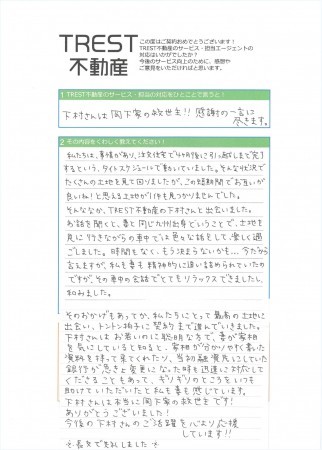 TREST
不動産
この度はご契約おめでとうございます!
TREST不動産のサービス・担当エージェントの
対応はいかがでしたか?
今後のサービス向上のために、感想や
ご意見をいただければと思います。
1 TREST不動産のサービス・担当の対応をひとことで言うと!
下村さんは岡下家の救世主!! 感謝の一言に
尽きます。
2 その内容をくわしく教えてください!
私たちは、事情があり、注文住宅で4ヶ月後に引っ越しまで完了
するという、タイトスケジュールで動いていました。そんな状況で
たくさんの土地を見て回りましたが、この短期間でお互いが
良いね!と思える土地が1件も見つかりませんでした。
そんななか、TREST不動産の下村さんと出会いました。
お話を聞くと、妻と同じ九州出身ということで、土地を
見に行きながらの車中では色々な話をして、楽しく過
ごしました。時間もなく、もう決まらないかも…今だから
言えますが、私も妻も精神的に追い詰められていたの
ですが、その車中の会話でとてもリラックスできましたし、
和みました。
そのおかげもあってか、私たちにとって最高の土地に
出会い、トントン拍子に契約まで進んでいきました。
下村さんはお若いのに聡明な方で、妻が家相
を気にしていると知ると、家相が分かりやすく書いた
資料を持って来てくれたり、当初融資先にしていた
銀行が急きょ変更になった時も迅速に対応して
くださることもあって、ギリギリのところをいつも
助けていただいたと私も妻も感じています。
下村さんは本当に岡下家の救世主です!
ありがとうございました!
今後の下村さんのご活躍を心より応援
しています!!
長文で失礼しました